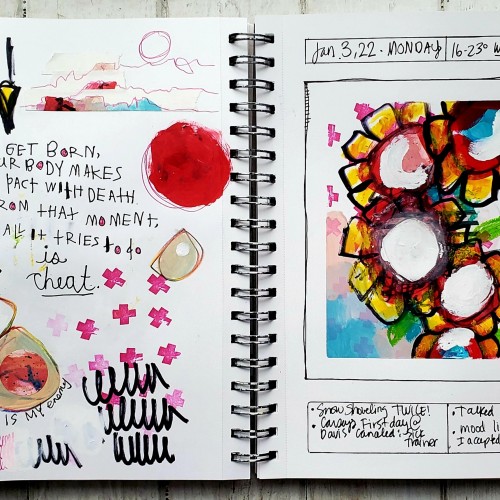 GET BORN,
UR BODY MAKES
PACT WITH DEATH
ROM THAT MOMENT,
ALL IT TRIES to do
is
cheat.
IS MY enemy
Jan. 3, 22 • MONDAY
16-23°
• Snow Shoveling TWICE!
• First day @
Davis Canceled: Sick
trainer
• Talked
• mood li
I